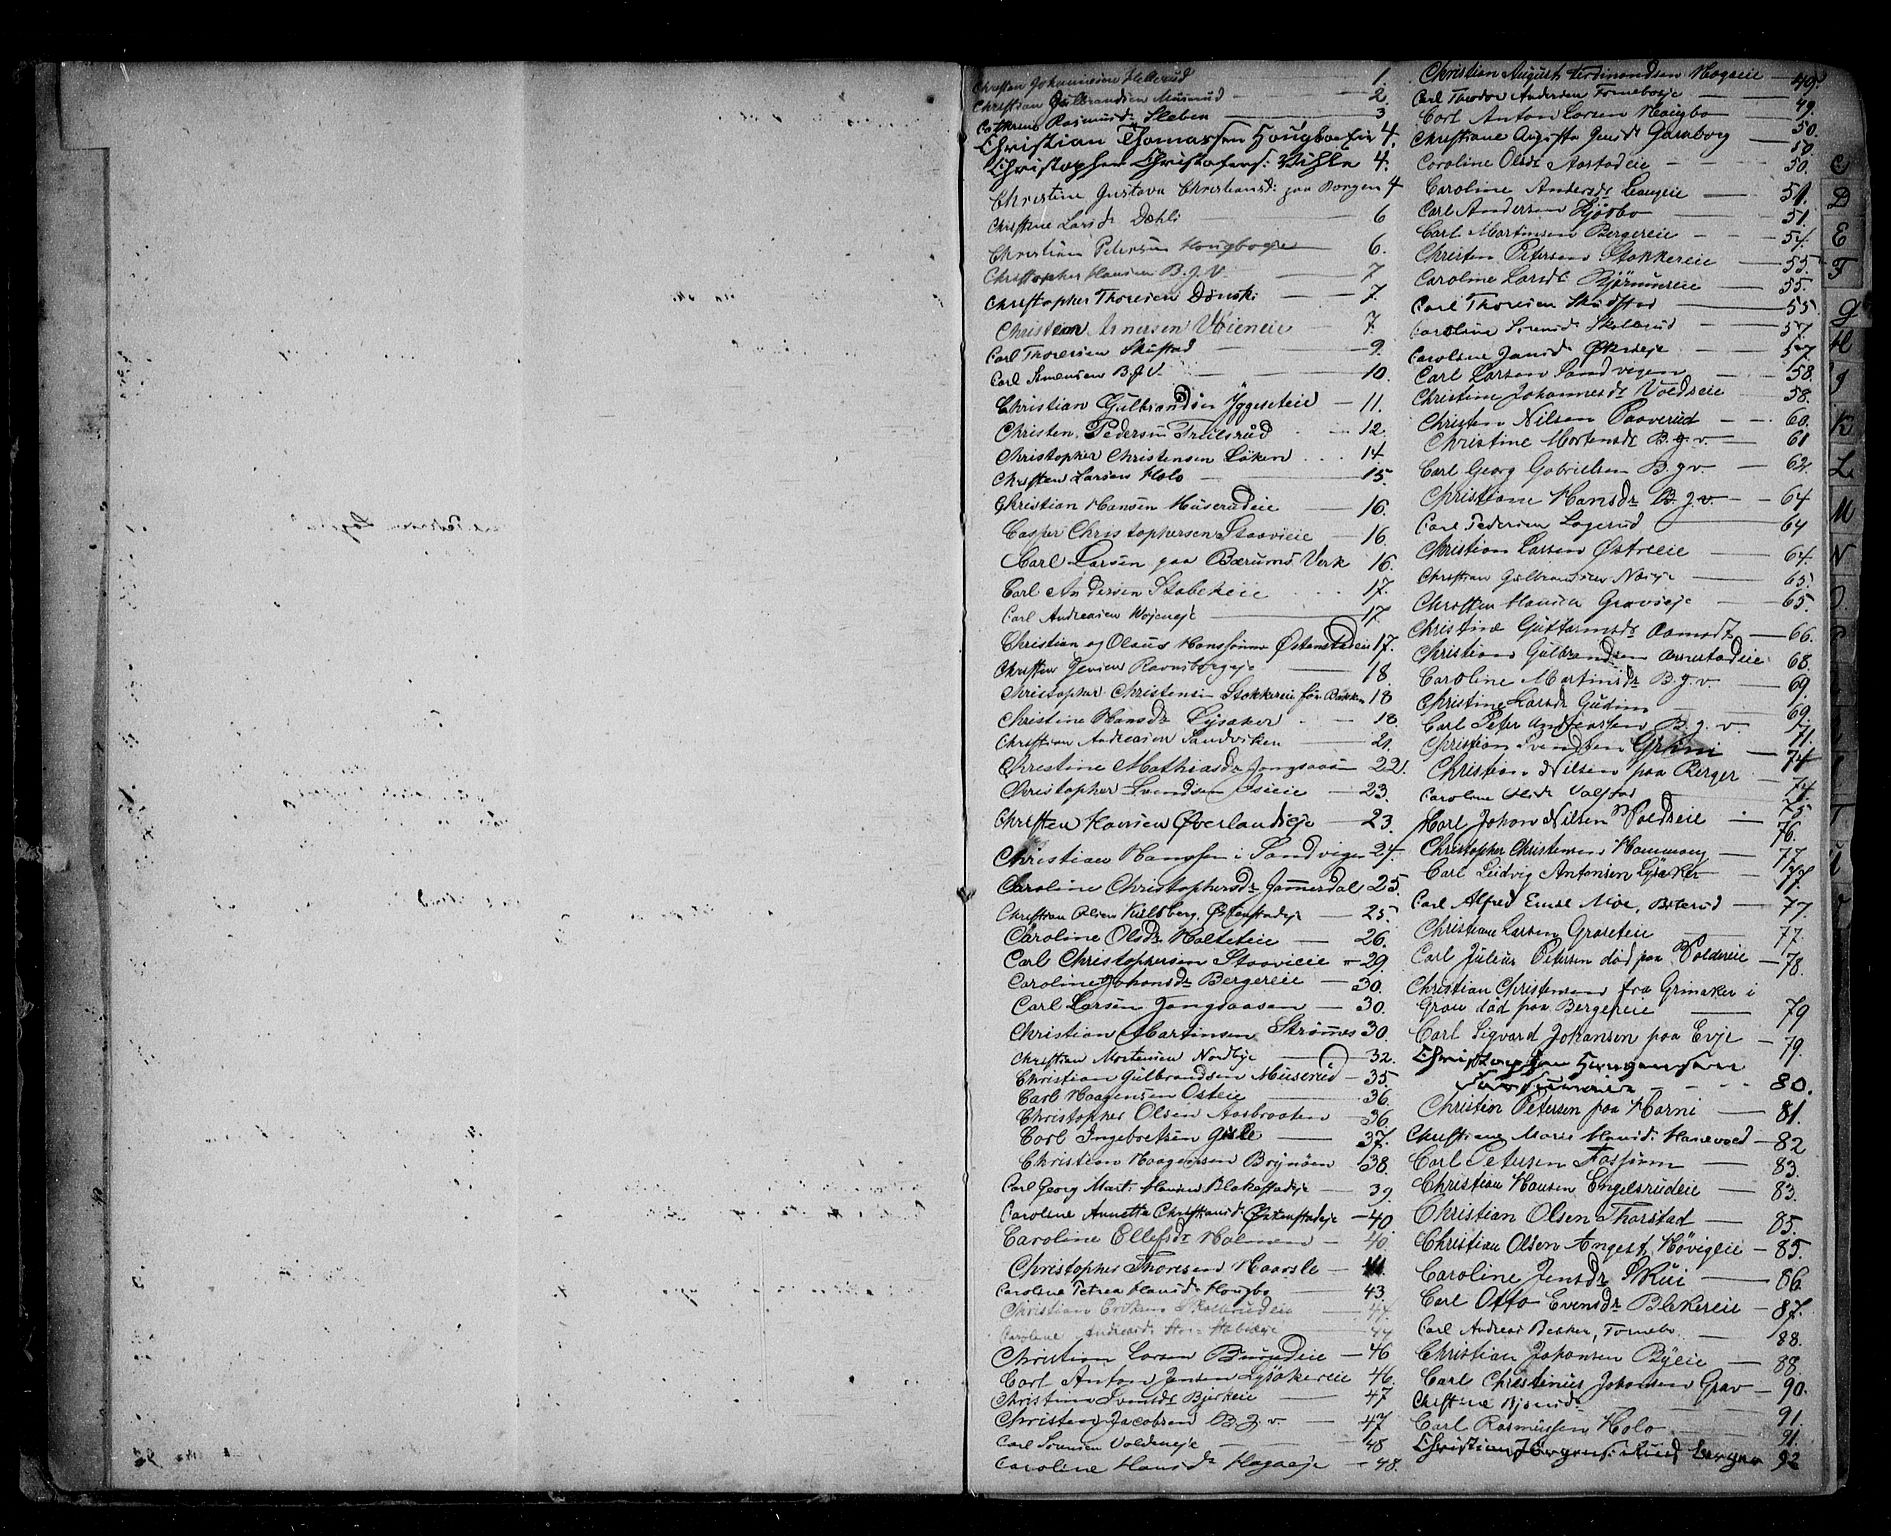 Christen Johannesen Hellerud 1.
Christian Gulbrandsen Muserud 2.
Cathrine Rasmusdr Sleben 3
Christian Thomassen Hougboeie 4.
Christopher Christofers: Vihla 4.
Christine Gustava Christiansdr paa Borgen 4
Christine Larsd: Dæhli 6
Christian Petersen Hougboeje 6.
Christopher Hansen B.g.V. 7
Christopher Thoresen Dønski 7
Christian Arnersen Vøieneie 7.
Carl Thoresen Skustad 9.
Carl Simensen B.g.V. 10.
Christian Gulbrandsen Yggeseteie 11.
Christen Pedersen 12.
Christopher Christensen Løken 14
Christen Larsen Holo 15.
Christian Hansen Muserudeie 16.
Casper Christophersen Staavieie 16
Carl Larsen paa Bærums Verk 16.
Carl Andersen Stabekeie 17.
Carl Andreasen Vøieneje 17
Christian og Olaus Hanssønner Østenstadeie 17.
Christen Jensen Ravnsborgeje 18
Christopher Christensen Stokkereie før Bakken 18
Christine Hansdr Lysaker 18.
Christian Andreasen Sandviken 21.
Christine Mathiasdr Jongsaasen 22.
Christopher Svendsen 23.
Christen Hansen Øverlandseje 23.
Christian Hanssen i Sandvigen 24.
Caroline Christophersdr Jammerdal 25.
Christian Olsen Kulsberg, Østenstadeje 25
Caroline Olsdr Holteteie 26.
Carl Christophersen Staavieie 29.
Caroline Johansdr Bergereie 30.
Carl Larsen Jongsaasen 30.
Christian Martinsen Strømnes 30.
Christian Mortensen Nordbye 32.
Christian Gulbrandsen Muserud 35
Carl Haagensen Osteie 36.
Christopher Olsen Aasbraaten 36
Carl Ingebretsen Gisle 37.
Christian Haagensen Brynøen 38.
Carl Georg Mart: Hansen Blakestadeje 39.
Caroline Annette Christiansd: Østenstadeje 40
Caroline Ellefsdr Holmen 40.
Christopher Thoresen Haarsle 41.
Caroline Petrea Hansd: Hougbo 43.
Christian Eriksen Skollerudeie 44.
Caroline Andreasd: Stabekeje 44
Christian Larsen Burudeie 46
Carl Anton Jensen Lysakereie 46.
Christine Svensdr Bjerkeie 47
Christen Jacobsen B.g.v. 47
Carl Svensen Voldeneje 48
Caroline Hansdr Hagaeje 48.
Christian August Ferdinandsen Hagaeie 49.
Carl Theodor Andersen Forneboeje 49.
Carl Anton Larsen Haugbo 50.
Christiane Augusta Jensd: Gamborg 50
Caroline Olsdr Aastadeie 50.
Caroline Andersdr Haugeie 51.
Carl Andersen Kjørbo 51.
Carl Martinsen Bergereie 54.
Christen Petersen Stokkereie 55.
Caroline Larsdr Bjørumseie 55.
Carl Thoresen Skustad 55
Caroline Svensd: Skollerud 57
Caroline Jansd: Økrieje 57.
Carl Larsen Sandvigen 58.
Christine Johannesdr Voldseie 58.
Christen Nilsen Paaverud 60.
Christine Mortensdr B.g.v. 61
Carl Georg Gabrielsen B.g.v. 62.
Christiane Hansdr B.g.v. 64
Carl Pedersen Lagerud 64
Christian Larsen Østreeie 64.
Christian Gulbrandsen Næsje 65.
Christen Hansen Gravseje 65.
Christine Guttormsdr Aamodt 66.
Christian Gulbrandsen Arnestadeie 68.
Caroline Martinsdr B.g.v. 69
Christine Larsdr Gudim 69.
Carl Peter Andreassen B.g.v. 71.
Christian Svendsen Grini 74
Christian Nilsen paa Berger 74.
Caroline Olsdr Valstad 75.
Karl Johan Nilsen Voldseie 76.
Christopher Christensen Hammang 77
Carl Ludvig Antonsen Lysaker 77.
Carl Alfred Emil Moe, Bilerud 77.
Christian Larsen Graseteie 77.
Carl Julius Petersen død paa Voldseie 78.
Christian Christensen fra Grimaker i
Grau død paa Bergereie 79
Carl Sigvard Johansen paa Evje 79.
Christopher Haagensen
80.
Christian Petersen paa Horni 81.
Christiane Marie Hansd: Hasevold 82
Carl Petersen Fossum 83.
Christian Hansen Engelsrudeie 83.
Christian Olsen Thorstad 85.
Christian Olsen Angest, Høvigeie 85.
Caroline Jensdr Skui 86.
Carl Otto Evensdr Blekereie 87.
Carl Andreas Becker, Fornebo 88.
Christian Johansen Byeie 88
Carl Christinius Johansen Grav 90.
Christine Bjønsdr 91.
Carl Rasmussen Holo 91.
Christian Jørgens: Ruud Berger 92
C
D
E
F
G
H
I
K
L
M
N
O
P